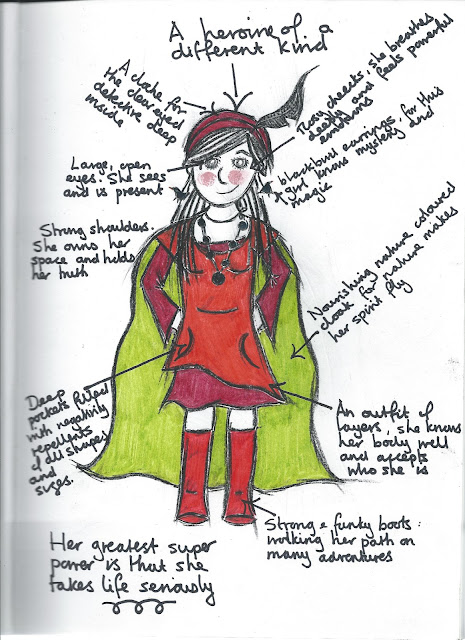 A heroine of a
different kind
A cloche for
the clear eyed
detective deep
inside
Rosy cheeks, she breathes
deeply and feels powerful
emotions
Large, open
eyes. She sees
and is present
blackbird earrings, for this
girl knows mystery and
magic
Strong shoulders.
She owns her
space and holds
her truth
Nourishing nature coloured
cloak for nature makes
her spirit fly
Deep
pockets filled
with negativity
repellents
of all shapes
and
sizes.
An outfit of
layers, she knows
her body well
and accepts
who she is
Strong & funky boots:
walking her path on
many adventures
Her greatest super
power is that she
takes life seriously